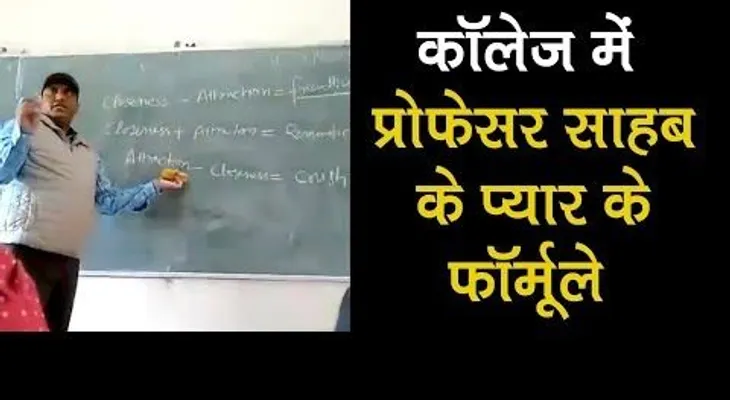 Closeness - Attraction = friendship
Closeness + Attraction = Romantic
Attraction - Closeness = Crush
कॉलेज में
प्रोफेसर साहब
के प्यार के
फॉर्मूले